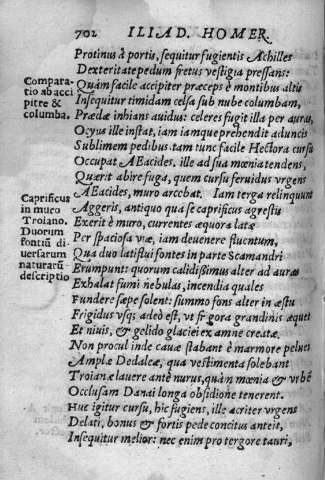 702 ILIAD. HOMER.
Protinus à portis, sequitur fugientis Achilles
Dexteritate pedum fretus vestigia pressans:
Compara-
tio ab acci
pitre &
columba.
Quàm facile accipiter præceps è montibus altis
Insequitur timidam celsa sub nube columbam,
Prædæ inhians auidus: celeres fugit illa per auras,
Ocyus ille instat, iam iamque prehendit aduncis
Sublimem pedibus. tam tunc facile Hectora cursu
Occupat AEacides, ille ad sua mœnia tendens,
Quærit abire fuga, quem cursu feruidus vrgens
AEacides, muro arcebat. Iam terga relinquunt
Caprificus
in muro
Troiano.
Duorum
fontiū di
uersarum
naturarū
descriptio
Aggeris, antiquo qua se caprificus agrestis
Exerit è muro, currentes æquora latæ
Per spaciosa viæ, iam deuenere fluentum,
Qua duo latiflui fontes in parte Scamandri
Erumpunt: quorum calidißimus alter ad auras
Exhalat fumi nebulas, incendia quales
Fundere sæpe solent: summo fons alter in æstu
Frigidus vsq; adeò est, vt sit gora grandinis æquet
Et niuis, & gelido glaciei ex amne creatæ.
Non procul inde cauæ stabant è marmore pelues
Amplæ Dedaleæ, qua vestimenta solebant
Troianæ lauere antè nurus, quàm mœnia & vrbē
Occlusam Danai longa obsidione tenerent.
Huc igitur cursu, hic fugiens, ille acriter vrgens
Delati, bonus & fortis pede concitus anteit,
Insequitur melior: nec enim pro tergore tauri,